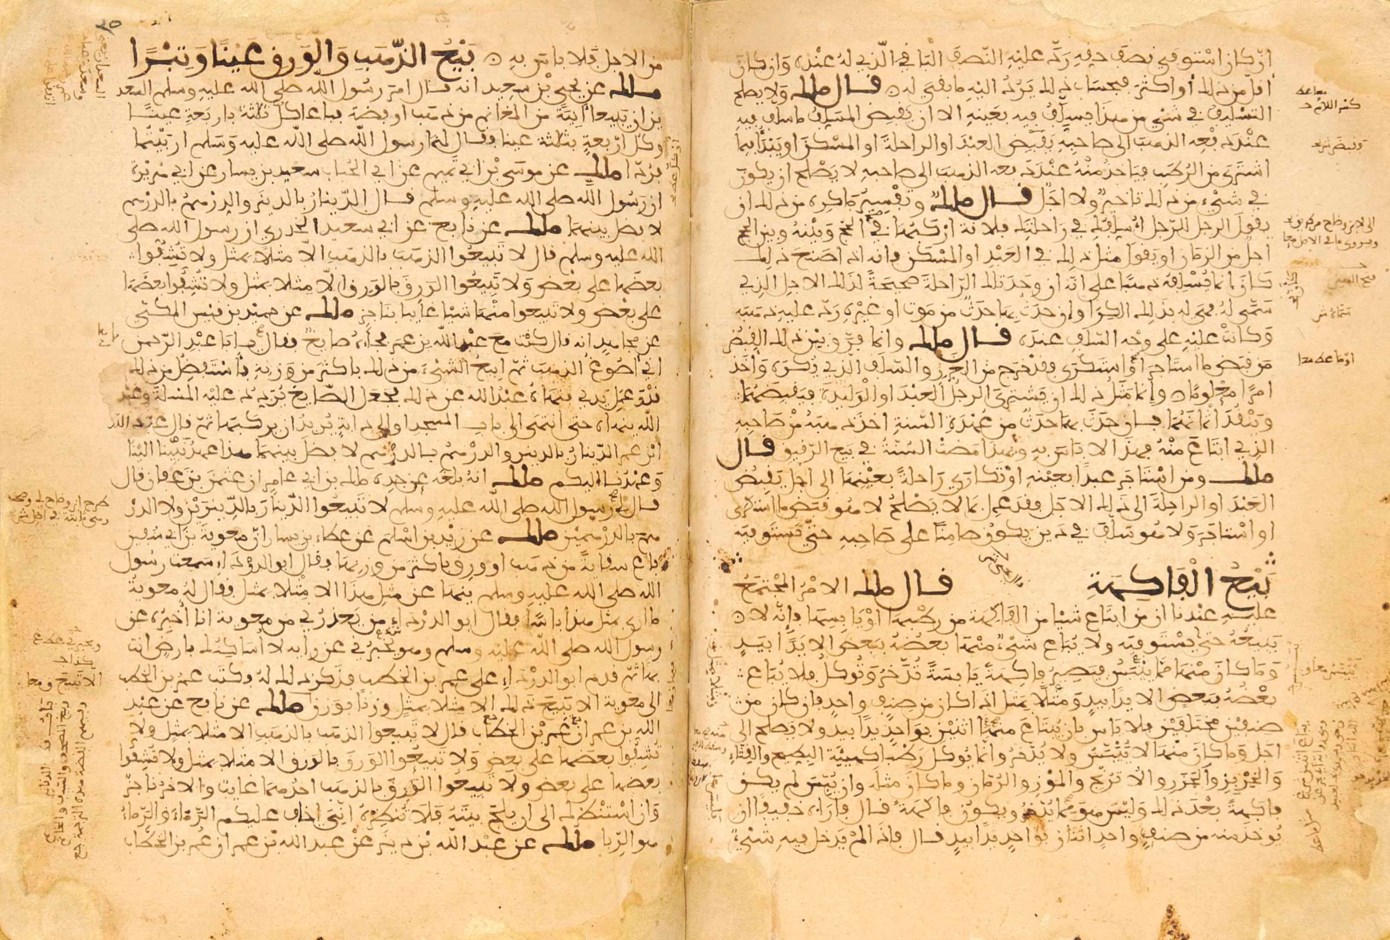 ان كان استوفى نصف حقه رد عليه النصف الباقي الذي له عنده وان كان
اقل من ذلك او اكثر فبحساب ذلك يرد اليه ما بقي له قال ملك ولا يصلح
التسليف في شيء من هذا يسلف فيه بعينه الا ان يقبض المسلف ما سلف فيه
عند دفعه الذهب الى صاحبه يقبض العبد او الراحلة او المسكن او يبدأ فيما
اشترى من الرطب فياخذ منه عند دفعه الذهب الى صاحبه لا يصلح ان يكون
في شيء من ذلك تاخير ولا اجل قال ملك وتفسير ما كره من ذلك ان
يقول الرجل للرجل اسلفك في راحلتك فلانة اركبها في الحج وبينه وبين الحج
اجل من الزمان او يقول مثل ذلك في العبد او المسكن فانه اذا صنع ذلك
كان انما يسلفه ذهبا على انه ان وجد تلك الراحلة صحيحة لذلك الاجل الذي
سمى له فهي له بذلك الكرا وان حدث بها حدث من موت او غيره رد عليه ذهبه
وكانت عليه على وجه السلف عنده قال ملك وانما فرق بين ذلك القبض
من قبض ما استاجر او استكرى فقد خرج من الغرر والسلف الذي يكره واخذ
امرا معلوما وانما مثل ذلك ان يشتري الرجل العبد او الوليدة فيقبضهما
وينقد اثمانهما فان حدث بهما حدث من عهدة السنة اخذ ذهبه من صاحبه
الذي ابتاع منه فهذا لا باس به وبهذا مضت السنة في بيع الرقيق قال
ملك ومن استاجر عبدا بعينه او تكارى راحلة بعينها الى اجل يقبض
العبد او الراحلة الى ذلك الاجل فقد عمل بما لا يصلح لا هو قبض ما استكرى
او استاجر ولا هو سلف في دين يكون ضامنا على صاحبه حتى يستوفيه
بيع الفاكهة قال ملك الامر المجتمع
عليه عندنا ان من ابتاع شيئا من الفاكهة من رطبها او يابسها فانه لا
يبيعه حتى يستوفيه ولا يباع شيء منها بعضه ببعض الا يدا بيد
وما كان منها مما ييبس فيصير فاكهة يابسة تدخر وتوكل فلا يباع
بعضه ببعض الا يدا بيد ومثلا بمثل اذا كان من صنف واحد فان كان من
صنفين مختلفين فلا باس بان يبتاع منه اثنين بواحد يدا بيد ولا يصلح الى
اجل وما كان منها لا ييبس ولا يدخر وانما يوكل رطبا كهيئة البطيخ والقثاء
والخربز والجزر والاترنج والموز والرمان وما كان مثله وان يبس لم يكن
فاكهة بعد ذلك وليس هو مما يدخر ويكون فاكهة قال فاراه خفيفا ان
يوخذ منه من صنف واحد اثنان بواحد يدا بيد قال فاذا لم يدخل فيه شيء
من الاجل فلا باس به بيع الذهب والورق عينا وتبرا
ملك عن يحيى بن سعيد انه قال امر رسول الله صلى الله عليه وسلم السعد
ين ان يبيعا انية من المغانم من ذهب او فضة فباعا كل ثلثة باربعة عينا
وكل اربعة بثلثة عينا فقال لهما رسول الله صلى الله عليه وسلم اربيتما
فردا ملك عن موسى بن ابي تميم عن ابي الحباب سعيد بن يسار عن ابي هريرة
ان رسول الله صلى الله عليه وسلم قال الدينار بالدينر والدرهم بالدرهم
لا فضل بينهما ملك عن نافع عن ابي سعيد الخدري ان رسول الله صلى
الله عليه وسلم قال لا تبيعوا الذهب بالذهب الا مثلا بمثل ولا تشفوا
بعضها على بعض ولا تبيعوا الورق بالورق الا مثلا بمثل ولا تشفوا بعضها
على بعض ولا تبيعوا منها شيئا غايبا بناجز ملك عن حميد بن قيس المكي
عن مجاهد انه قال كنت مع عبد الله بن عمر فجاءه صايغ فقال يابا عبد الرحمن
اني اصوغ الذهب ثم ابيع الشيء من ذلك باكثر من وزنه فاستفضل من ذلك
قدر عمل يدي فنهاه عبد الله عن ذلك فجعل الصايغ يردد عليه المسئلة وعبد
الله ينهاه حتى انتهى الى باب المسجد او الى دابة يريد ان يركبها ثم قال عبد الله
ابن عمر الدينار بالدينر والدرهم بالدرهم لا فضل بينهما هذا عهد نبينا الينا
وعهدنا اليكم ملك انه بلغه عن جده ملك بن ابي عامر ان عثمن بن عفان قال
قال لي رسول الله صلى الله عليه وسلم لا تبيعوا الدينار بالدينرين ولا الدر
هم بالدرهمين ملك عن زيد بن اسلم عن عطاء بن يسار ان معوية بن ابي سفين
باع سقاية من ذهب او ورق باكثر من وزنها فقال ابو الدرداء سمعت رسول
الله صلى الله عليه وسلم ينهى عن مثل هذا الا مثلا بمثل فقال له معوية
ما ارى بمثل هذا باسا فقال ابو الدرداء من يعذرني من معوية انا اخبره عن
رسول الله صلى الله عليه وسلم وهو يخبرني عن رايه لا اساكنك بارض انت
بها ثم قدم ابو الدرداء على عمر بن الخطاب فذكر ذلك له وكتب عمر بن الخطب
الى معوية الا تبيع ذلك الا مثلا بمثل وزنا بوزن ملك عن نافع عن عبد
الله بن عمر ان عمر بن الخطاب قال لا تبيعوا الذهب بالذهب الا مثلا بمثل ولا
تشفوا بعضها على بعض ولا تبيعوا الورق بالورق الا مثلا بمثل ولا تشفوا
بعضها على بعض ولا تبيعوا الورق بالذهب احدهما غايب والاخر ناجز
وان استنظرك الى ان يلج بيته فلا تنظره اني اخاف عليكم الرماء والرماء
هو الربا ملك عن عبد الله بن دينر عن عبد الله بن عمر ان عمر بن الخطاب